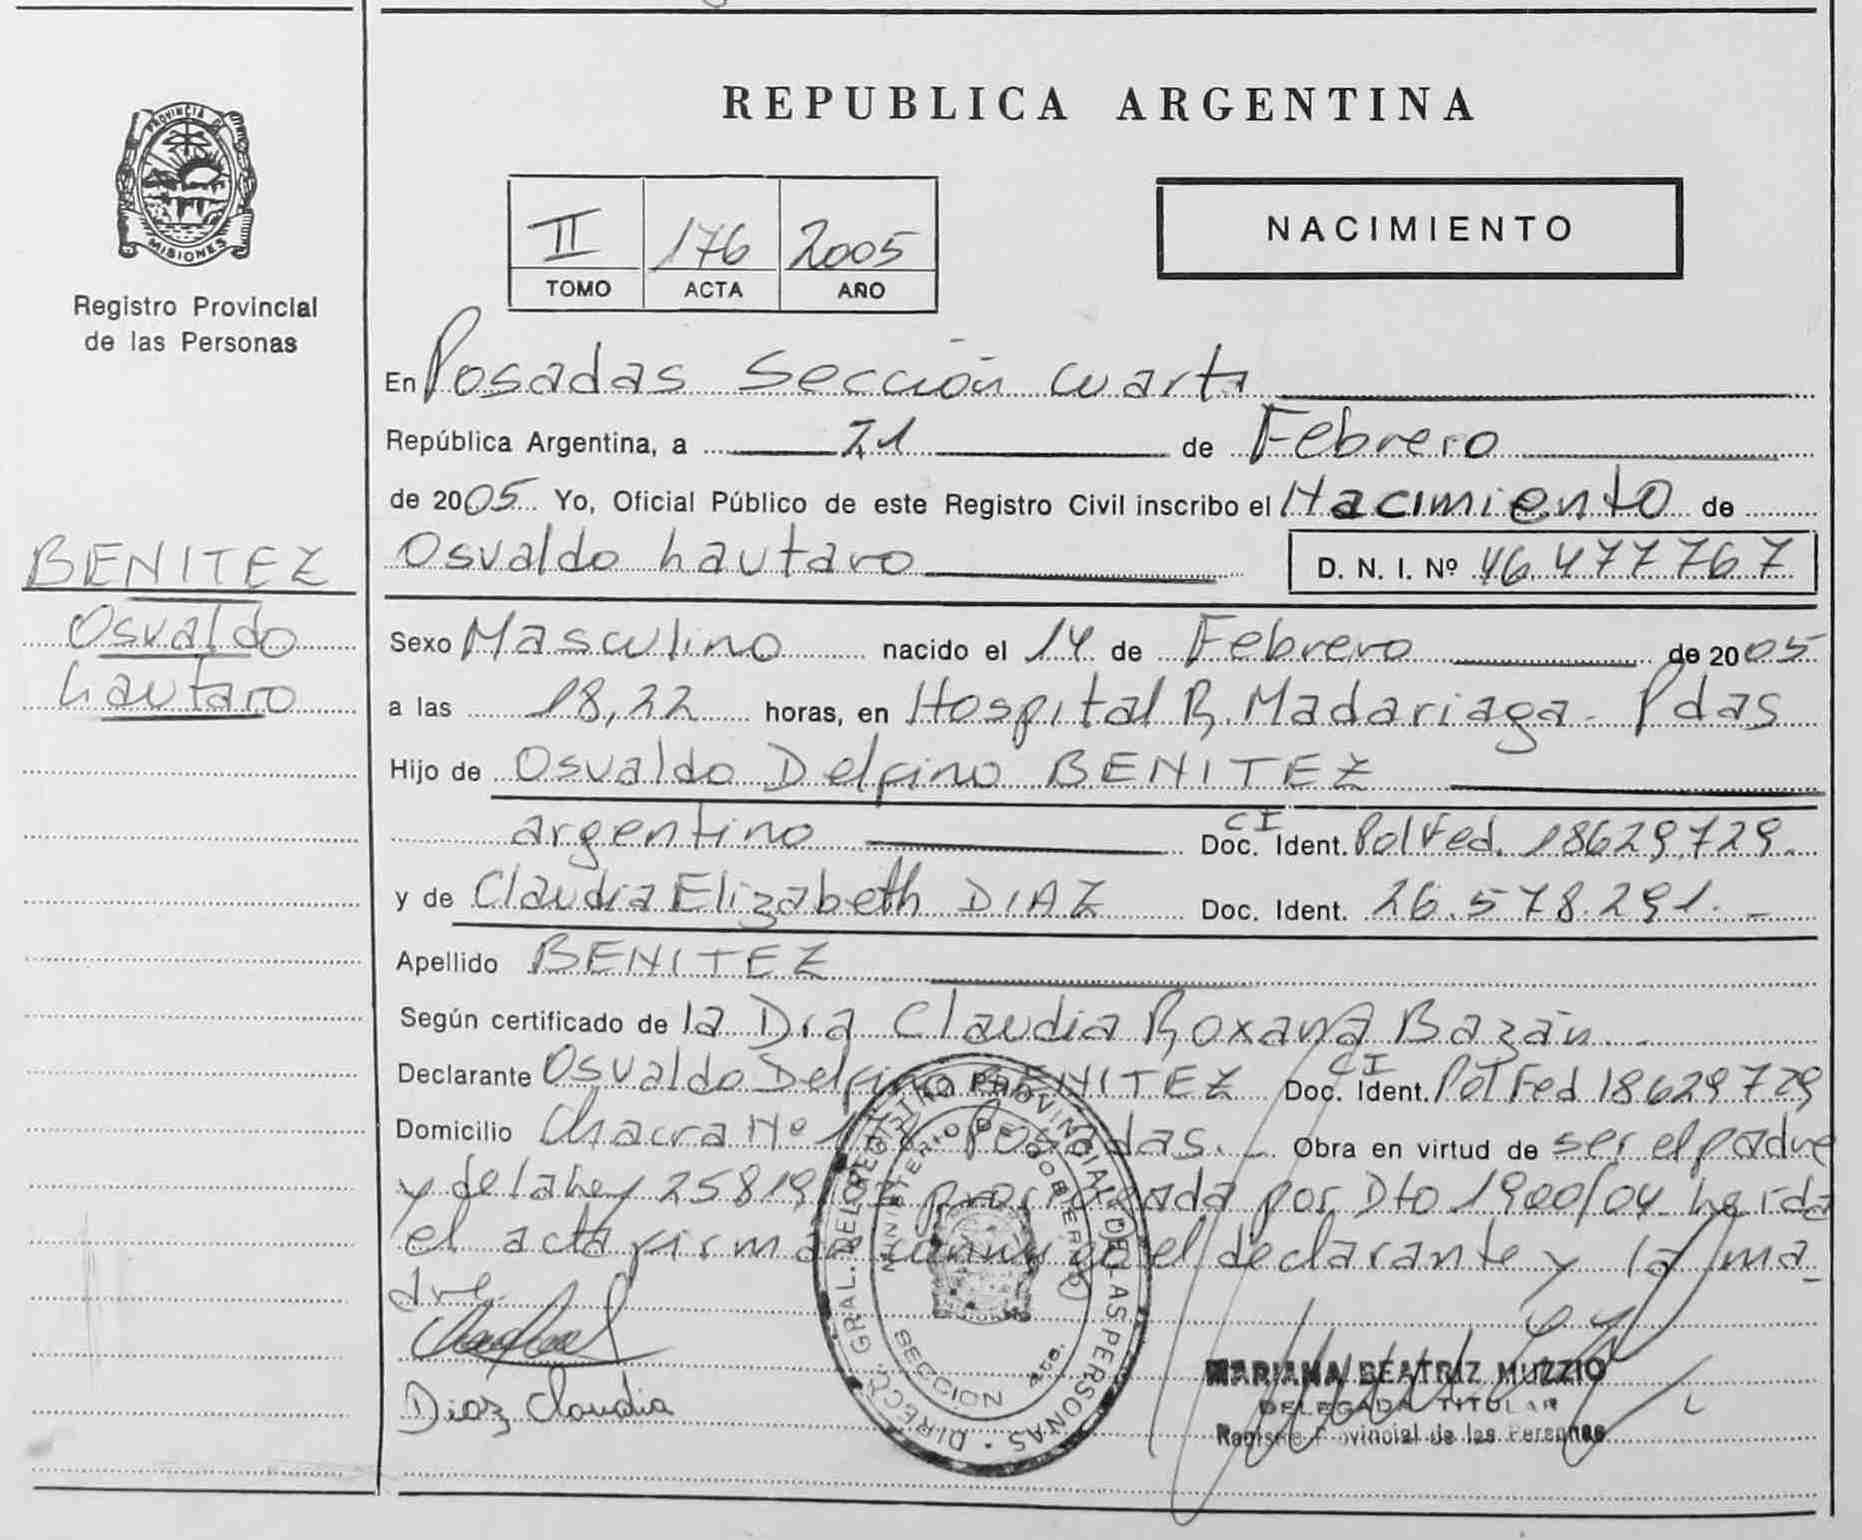 REPUBLICA ARGENTINA
PROVINCIA DE
MISIONES
Registro Provincial
de las Personas
II 176 2005
TOMO ACTA AÑO
NACIMIENTO
En Posadas Sección cuarta
República Argentina, a 21 de Febrero
de 2005 Yo, Oficial Público de este Registro Civil inscribo el Nacimiento de
Osvaldo Lautaro D. N. I. Nº 46.477767
BENITEZ
Osvaldo
Lautaro
Sexo Masculino nacido el 14 de Febrero de 2005
a las 18,22 horas, en Hospital R. Madariaga - Pdas
Hijo de Osvaldo Delfino BENITEZ
argentino CI Doc. Ident. Pol Fed. 18629.729.
y de Claudia Elizabeth DIAZ Doc. Ident. 26.578.291. -
Apellido BENITEZ
Según certificado de la Dra Claudia Roxana Bazán
Declarante Osvaldo Delfino BENITEZ CI Doc. Ident. Pol Fed 18629729
Domicilio Chacra Nº Posadas. - Obra en virtud de ser el padre
y de la Ley 25819/03 prorrogada por Dto 1900/04 Leída
el acta firman conmigo el declarante y la ma-
dre.
Diaz Claudia
DIRECC. GRAL. DEL REGISTRO PROVINCIAL DE LAS PERSONAS
MINISTERIO DE GOBIERNO
SECCION 4ta.
MARIANA BEATRIZ MUZZIO
DELEGADA TITULAR
Registro Provincial de las Personas